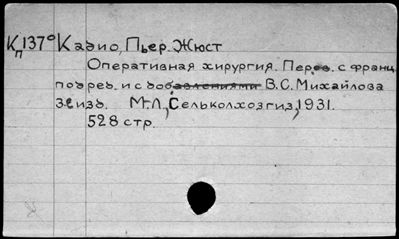 Кп137° Кадио, Пьер-Жюст
Оперативная хирургия. Перев. с франц
под ред. и с добавлениями В.С. Михайлова
3е изд. М-Л, Сельколхозгиз, 1931.
528 стр.